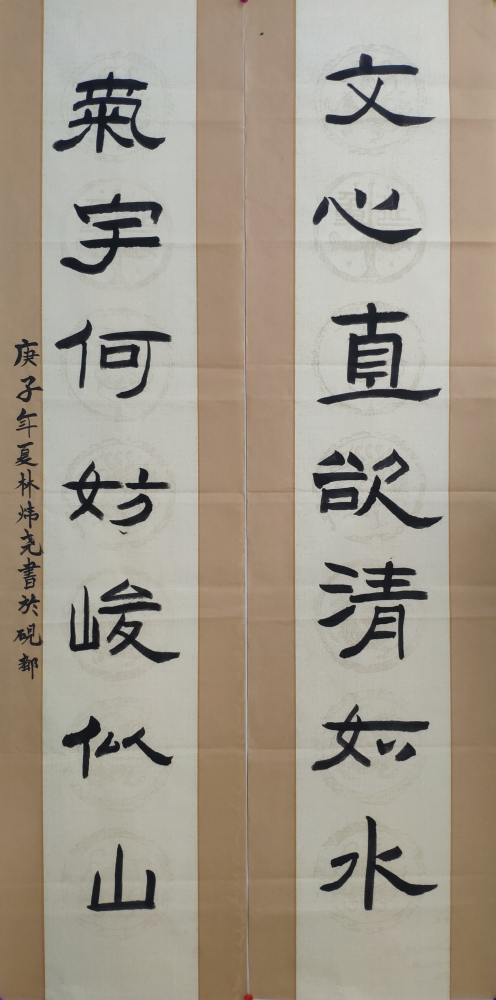 文心直欲清如水
氣宇何妨峻似山
庚子年夏林炜尧書於硯都